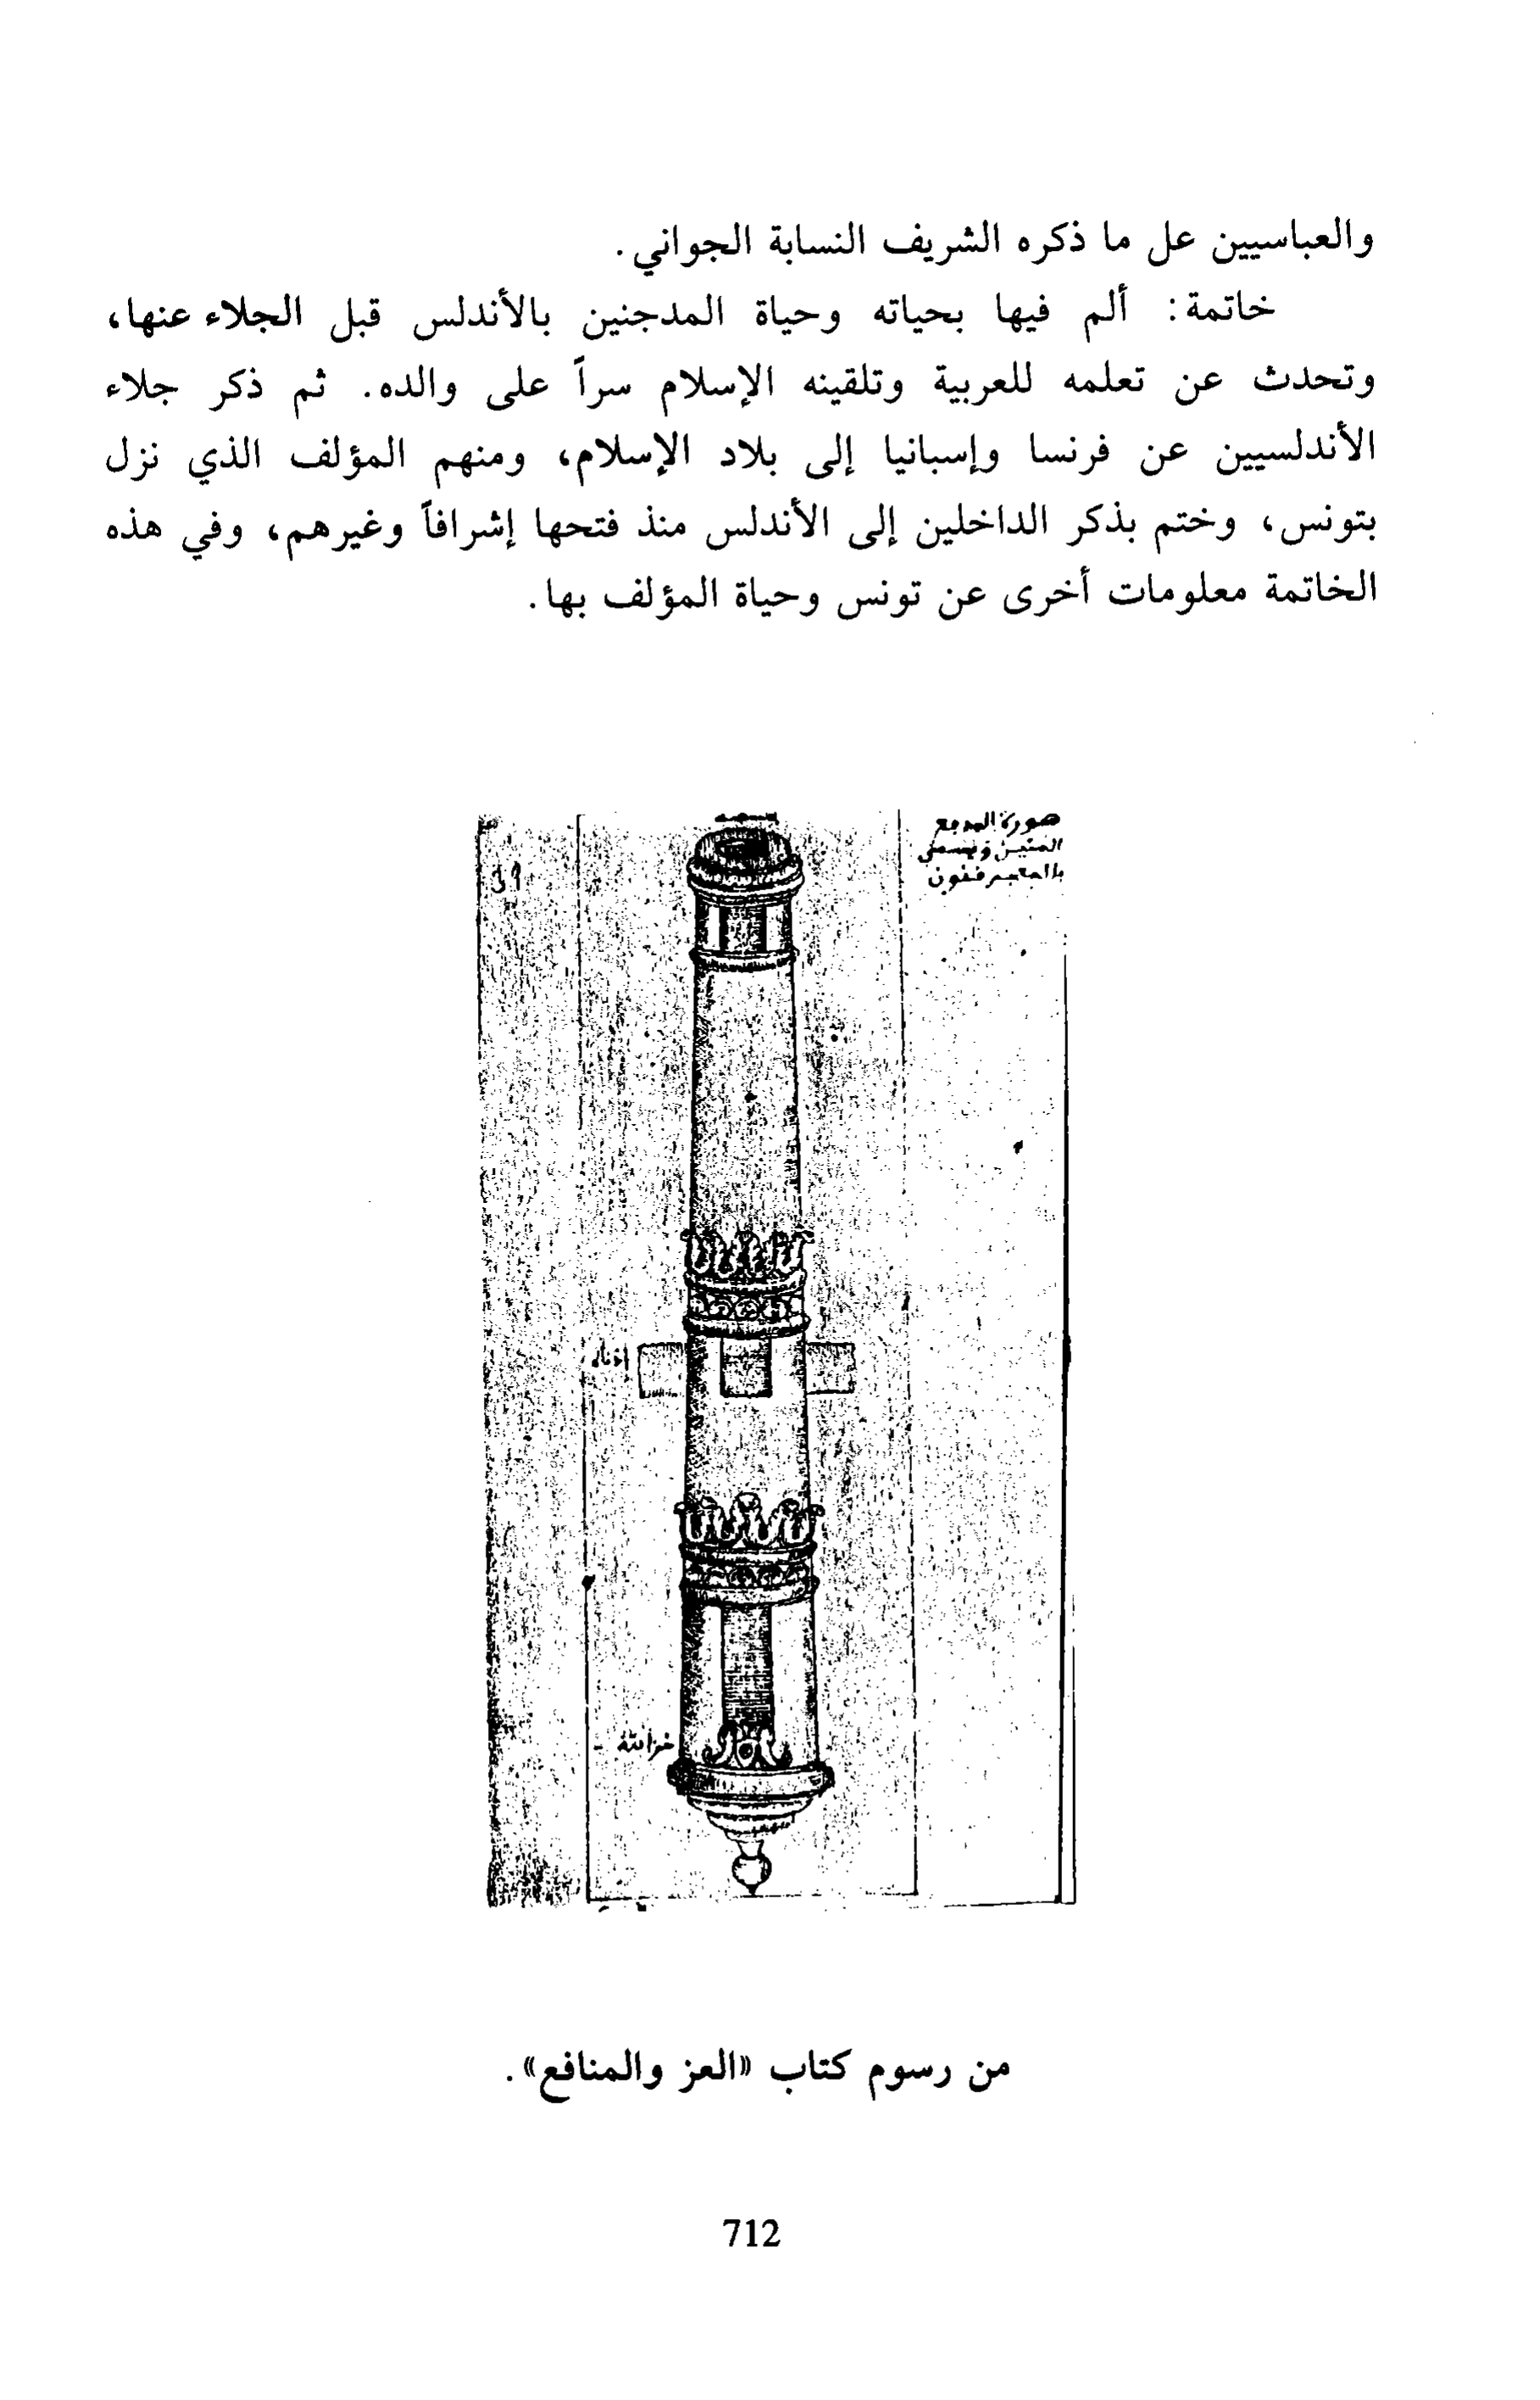 والعباسيين عل ما ذكره الشريف النسابة الجواني.
خاتمة: ألم فيها بحياته وحياة المدجنين بالأندلس قبل الجلاء عنها،
وتحدث عن تعلمه للعربية وتلقينه الإسلام سراً على والده. ثم ذكر جلاء
الأندلسيين عن فرنسا وإسبانيا إلى بلاد الإسلام، ومنهم المؤلف الذي نزل
بتونس، وختم بذكر الداخلين إلى الأندلس منذ فتحها إشرافاً وغيرهم، وفي هذه
الخاتمة معلومات أخرى عن تونس وحياة المؤلف بها.
صورة المدفع
خزانته
من رسوم كتاب «العز والمنافع».
712